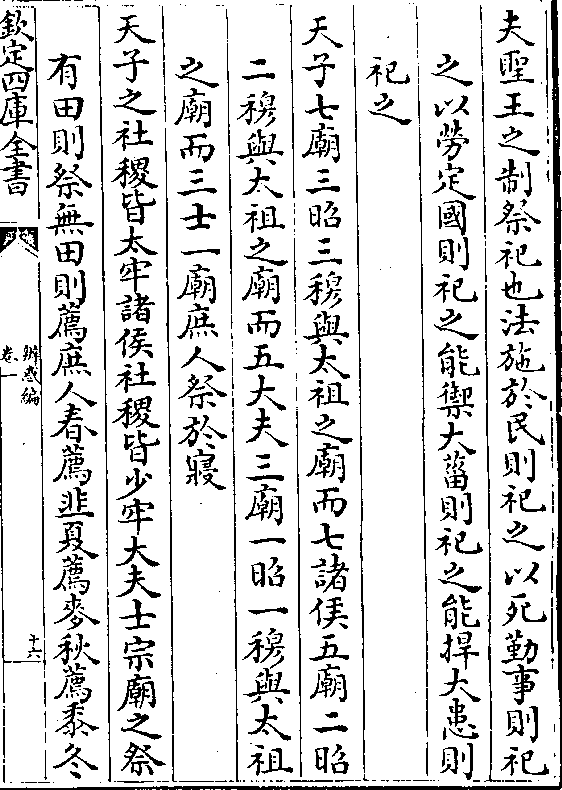 夫聖王之制祭祀也法施於民則祀之以死勤事則祀
之以勞定國則祀之能禦大菑則祀之能捍大患則
祀之
天子七廟三昭三穆與太祖之廟而七諸侯五廟二昭
二穆與太祖之廟而五大夫三廟一昭一穆與太祖
之廟而三士一廟庶人祭於寢
天子之社稷皆太牢諸侯社稷皆少牢大夫士宗廟之祭
有田則祭無田則薦庶人春薦韭夏薦麥秋薦黍冬
欽定四庫全書
辨惑編
卷一
十六